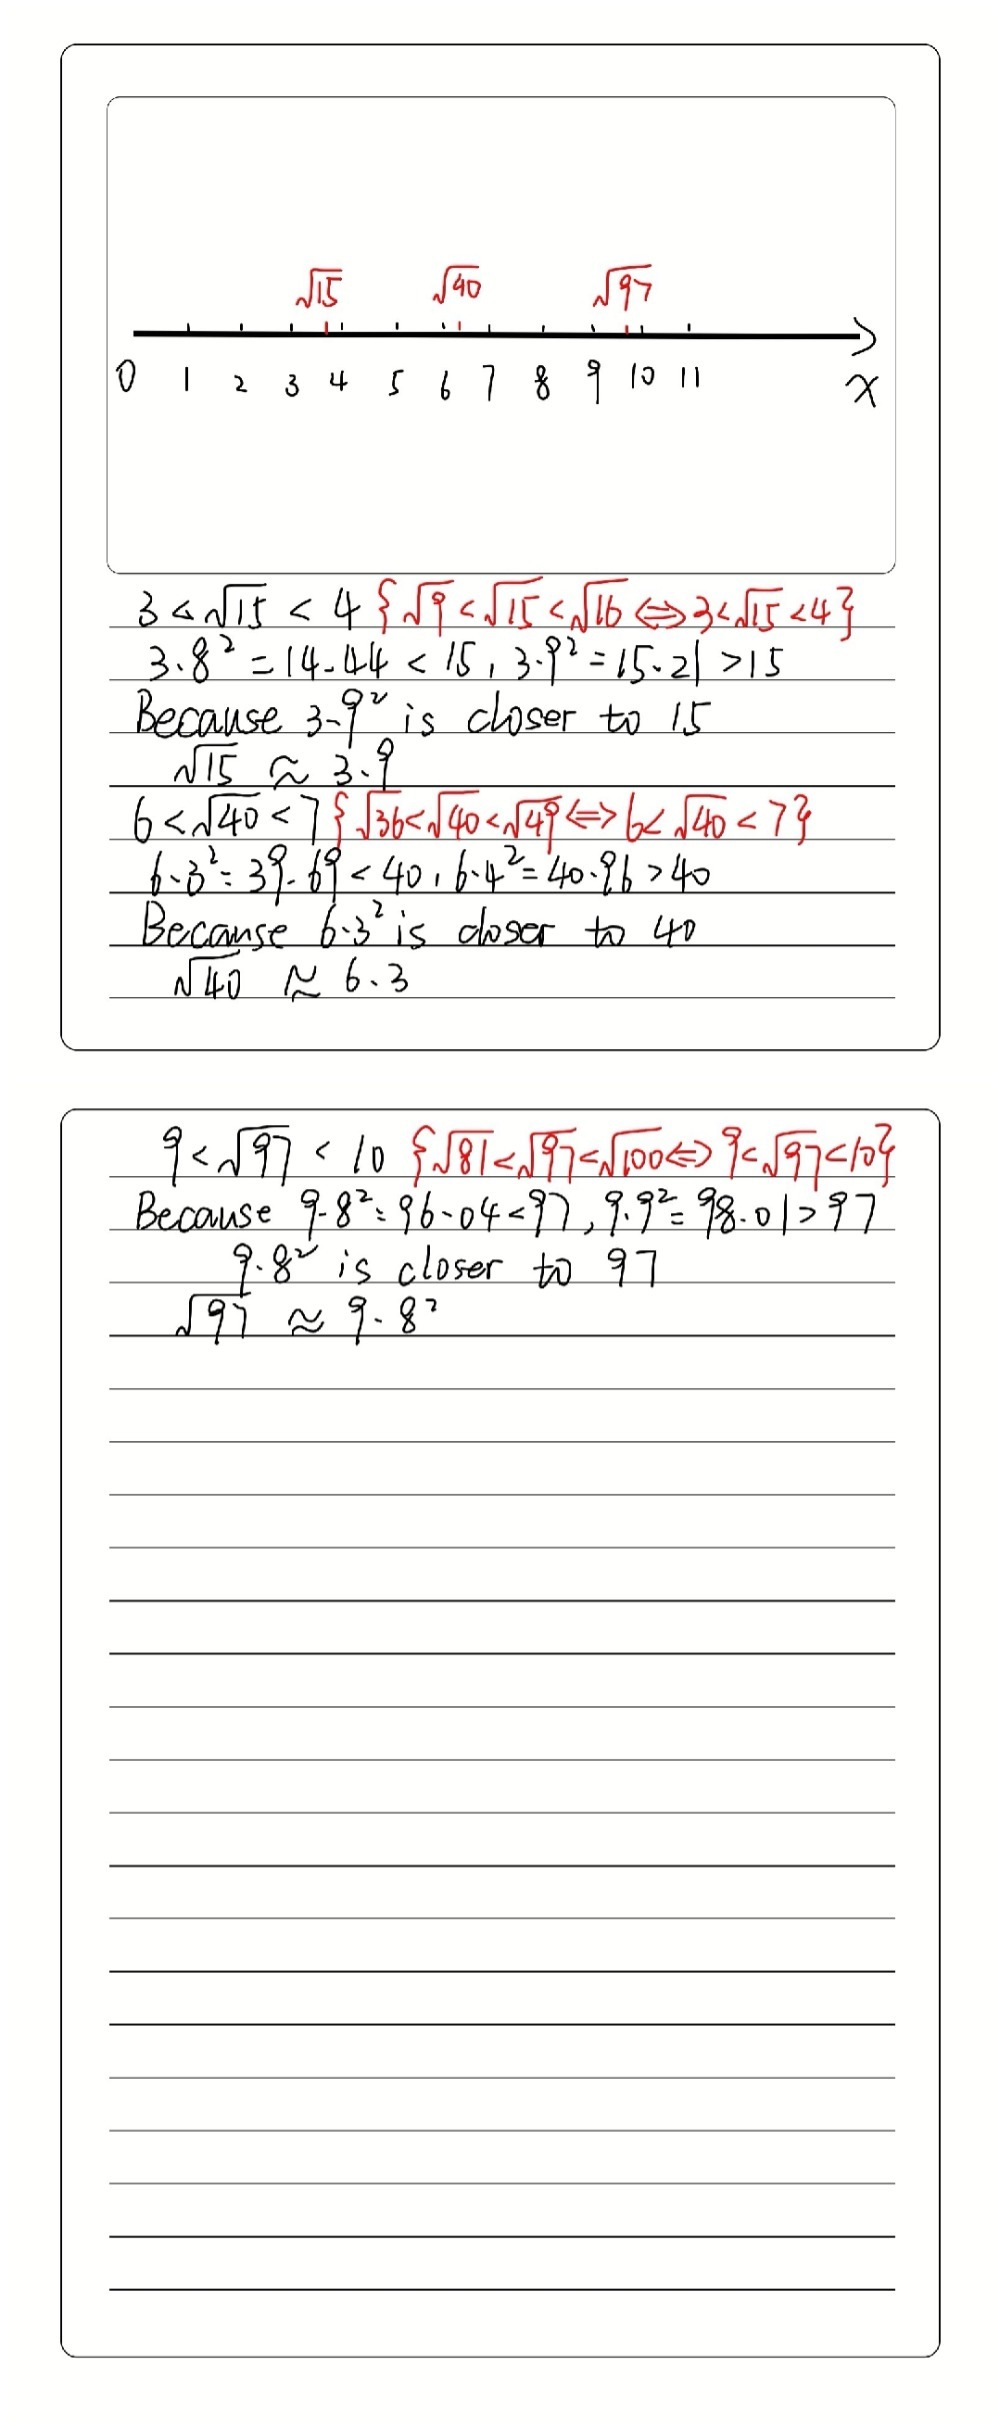 √15 √40 √97
0 1 2 3 4 5 6 7 8 9 10 11 x
3 < √15 < 4 {√9 < √15 < √16 ⟺ 3 < √15 < 4}
3.8² = 14.44 < 15, 3.9² = 15.21 > 15
Because 3.9² is closer to 15
√15 ≈ 3.9
6 < √40 < 7 {√36 < √40 < √49 ⟺ 6 < √40 < 7}
6.3² = 39.69 < 40, 6.4² = 40.96 > 40
Because 6.3² is closer to 40
√40 ≈ 6.3
9 < √97 < 10 {√81 < √97 < √100 ⟺ 9 < √97 < 10}
Because 9.8² = 96.04 < 97, 9.9² = 98.01 > 97
9.8² is closer to 97
√97 ≈ 9.8²